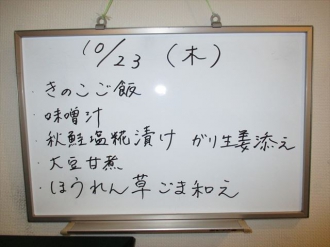 10/23 (木)
・きのこご飯
・味噌汁
・秋鮭塩糀漬け がり生姜添え
・大豆甘煮
・ほうれん草ごま和え